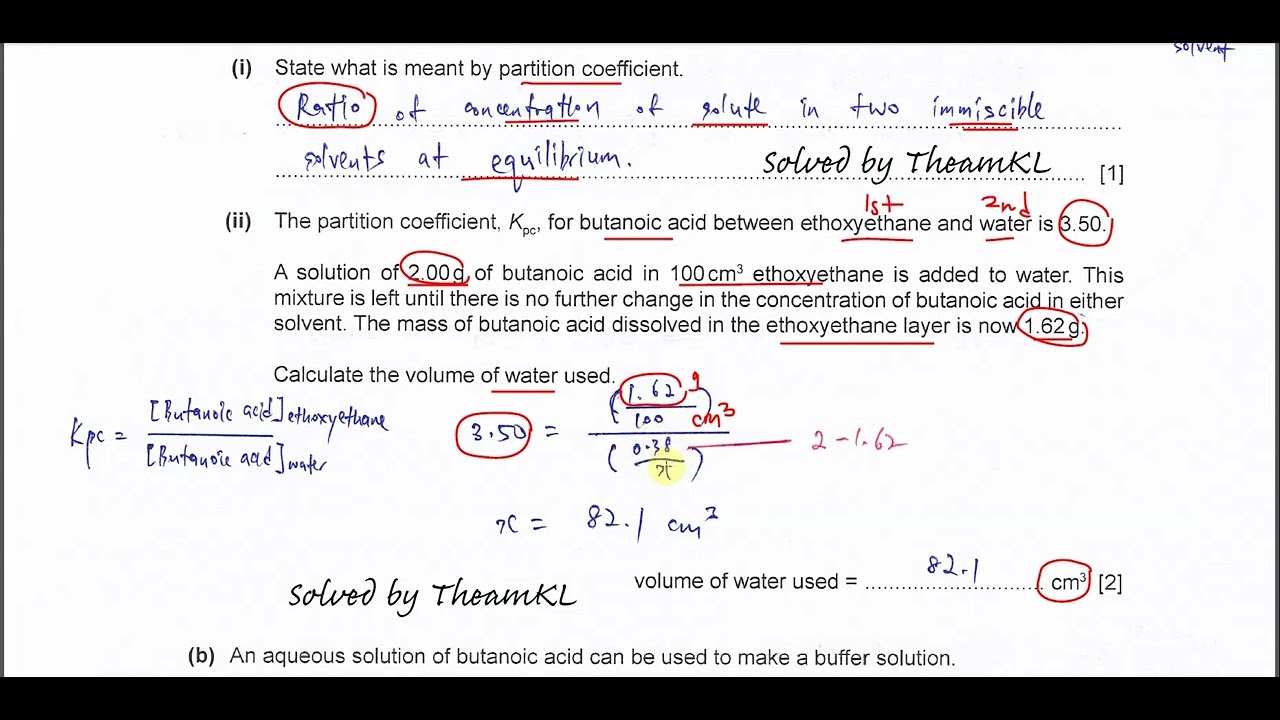 solvent
(i) State what is meant by partition coefficient.
Ratio of concentration of solute in two immiscible
solvents at equilibrium. Solved by TheamKL [1]
1st 2nd
(ii) The partition coefficient, Kpc, for butanoic acid between ethoxyethane and water is 3.50.
A solution of 2.00 g of butanoic acid in 100 cm³ ethoxyethane is added to water. This
mixture is left until there is no further change in the concentration of butanoic acid in either
solvent. The mass of butanoic acid dissolved in the ethoxyethane layer is now 1.62 g.
Calculate the volume of water used.
Kpc = [Butanoic acid]ethoxyethane / [Butanoic acid]water
3.50 = (1.62 g / 100 cm³) / (0.38 / x) 2 - 1.62
x = 82.1 cm³
volume of water used = 82.1 cm³ [2]
Solved by TheamKL
(b) An aqueous solution of butanoic acid can be used to make a buffer solution.